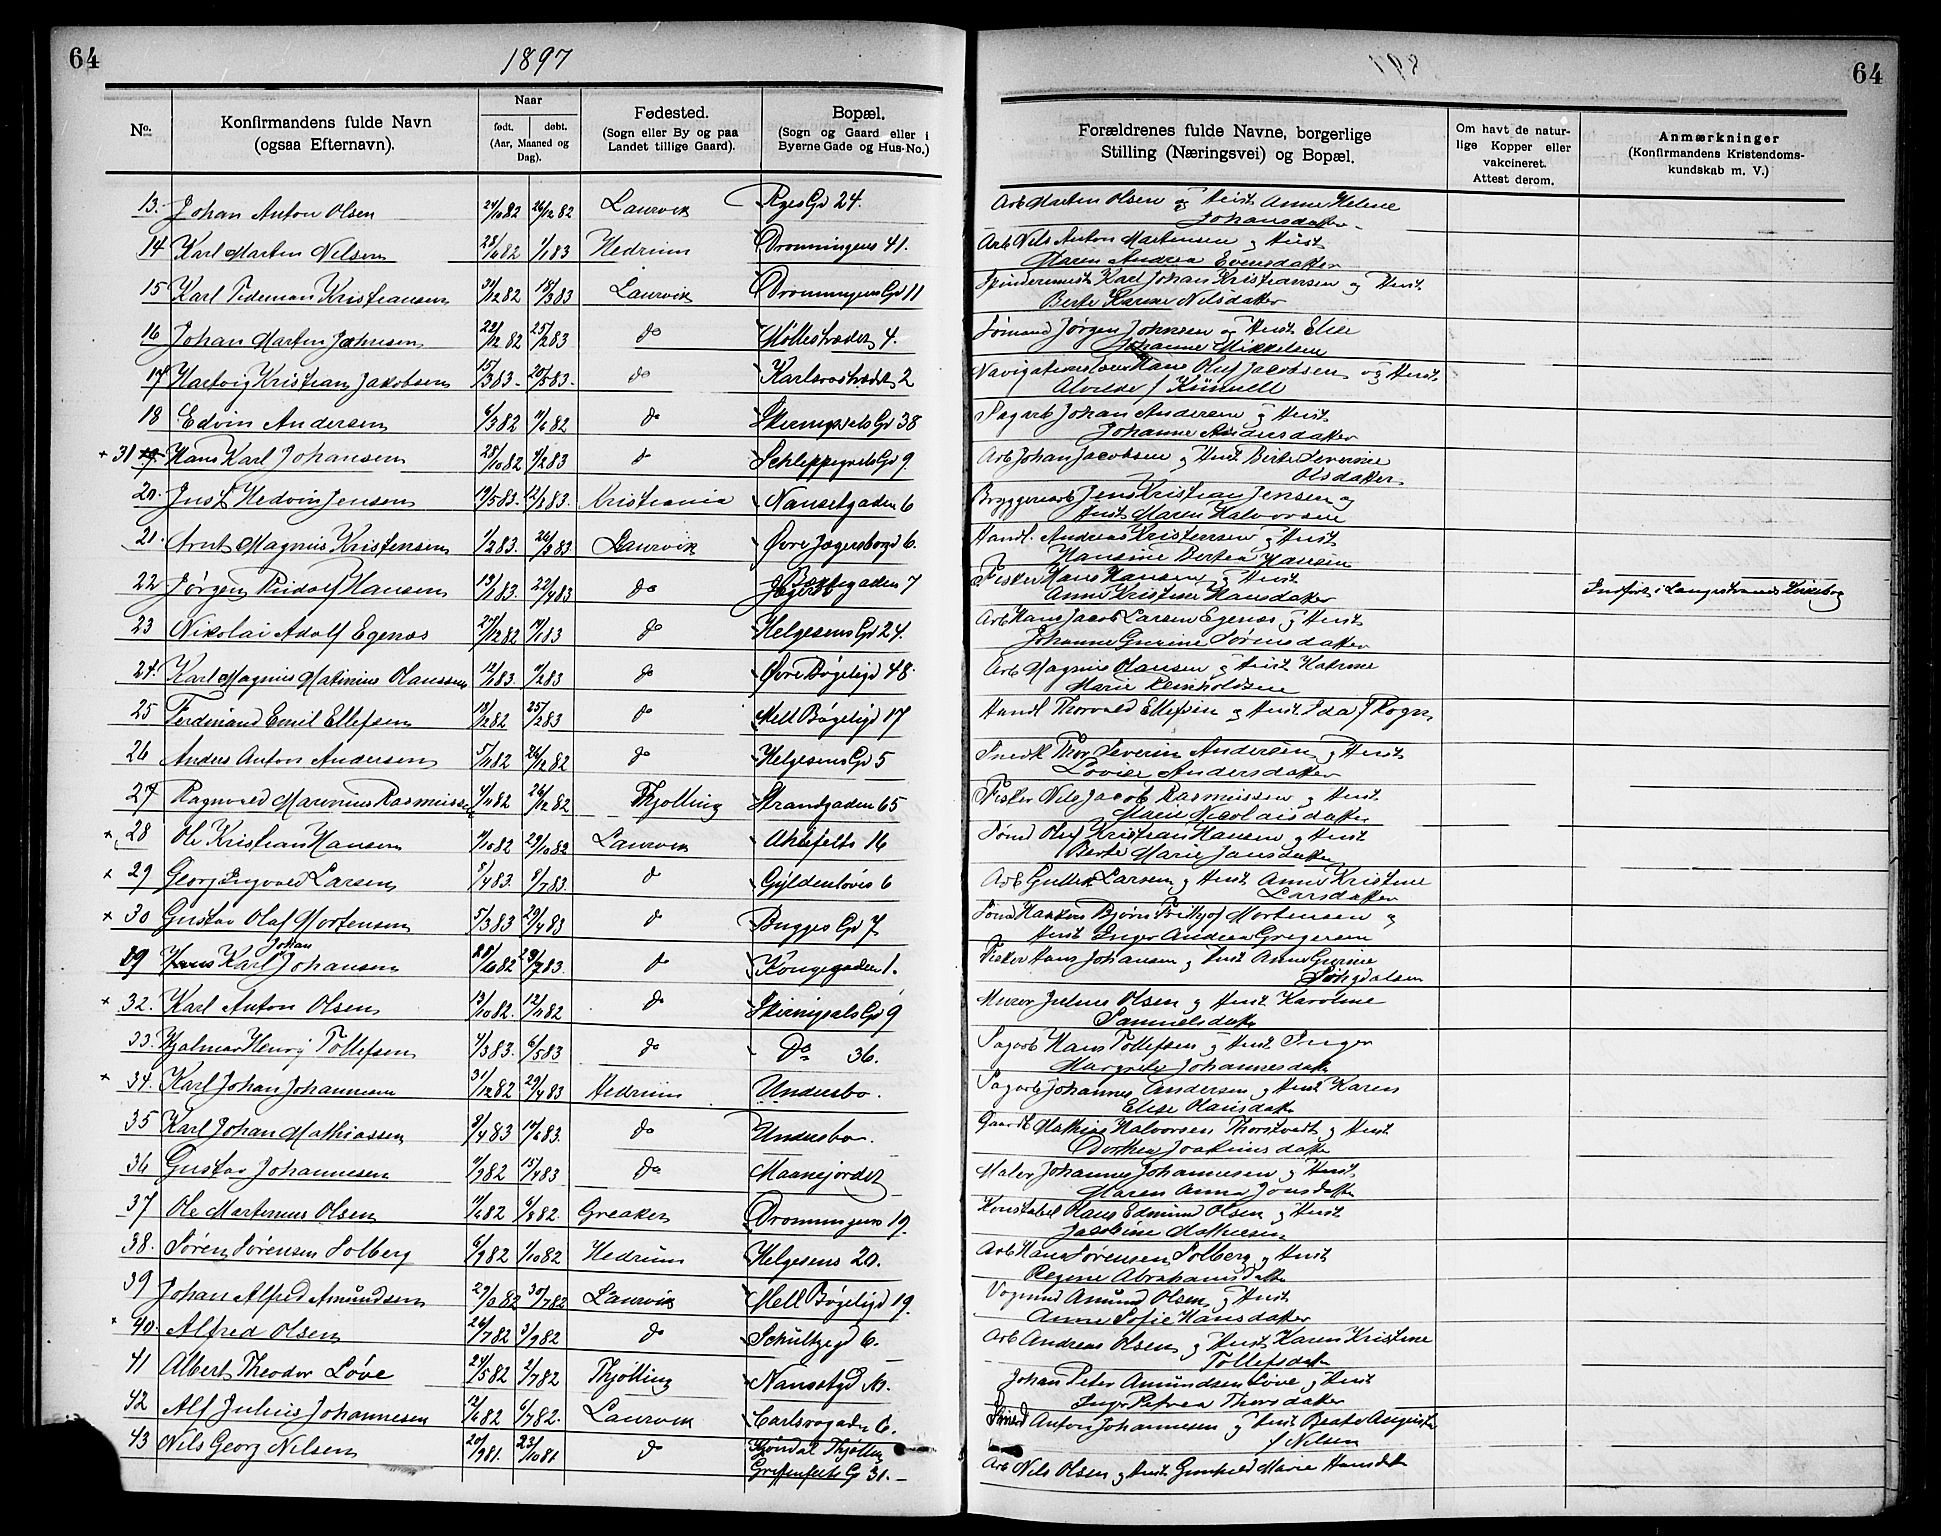 64
1897
No.
Konfirmandens fulde Navn
(ogsaa Efternavn).
Naar
født. døbt.
(Aar, Maaned og
Dag).
Fødested.
(Sogn eller By og paa
Landet tillige Gaard).
Bopæl.
(Sogn og Gaard eller i
Byerne Gade og Hus-No.)
13. Johan Anton Olsen 26/12 82 Laurvik Ryes Gd 24.
14 Karl Martin Nilsen 1/1 83 Hedrum Dronningens 41.
15 Karl Tideman Kristiansen 31/12 82 18/3 83 Laurvik Dronningens Gd 11
16 Johan Martin Johnsen 22/12 82 25/2 83 do Møllestrædet 4.
17 Hartvig Kristian Jakobsen 15/3 83. 20/5 83. do Karlsrostrædet 2
18 Edvin Andersen 6/3 82 11/6 82 do Skiringsals Gd 38
+ 31 Hans Karl Johansen 25/10 82 4/2 83 do Schleppegrels Gd 9
20. Just Hedvin Jensen Kristiania Nansetgaden 6
21. Arnt Magnus Kristensen 1/2 83. 26/3 83. Laurvik Øvre Jegersborgd 6.
22 Jørgen Rudolf Hansen 22/4 83 do gaden 7
23 Nikolai Adolf Egenæs 27/12 82 14/1 83 do Helgesens Gd 24.
24. Karl Magnus Matinius Olaussen do Øvre Bøgeligd 48.
25 Ferdinand Emil Ellefsen 13/12 82 25/2 83 do Mell Bøgeligd 17
26 Anders Anton Andersen 5/11 82 26/12 82 do Helgesens Gd 5
27 Ragnvald Marinius Rasmussen 4/11 82 26/12 82 Thjølling Strandgaden 65
+ 28 Ole Kristian Hansen 29/10 82 Laurvik Ahlefelts 16
+ 29 Georg Ingvald Larsen 5/4 83. 8/7 83. do Gyldenløves 6
+ 30 Gustav Olaf Mortensen 5/3 83 29/4 83 do Bugges Gd 7
Johan
Hans Karl Johansen do Kongegaden 1.
+ 32. Karl Anton Olsen 13/10 82. do Skiringsals Gd 9
33. Hjalmar Henrij Tollefsen 4/3 83. 6/5 83 do Do 36.
+ 34. Karl Johan Johannesen 31/12 82 29/4 83 Hedrum Undersbo.
35 Karl Johan Mathiassen 8/4 83 do Undersbo.
36 Gustav Johannesen 15/4 83 do Maanejordet
37 Ole Martinius Olsen 6/8 82. Greaker Dronningens 19.
38. Søren Sørensen Solberg 6/9 82 1/10 82 Hedrum Helgesens 20.
39 Johan Alfred Amundsen 30/7 82 Laurvik Mell Bøgeligd 19.
40. Alfred Olsen 26/7 82 3/9 82 do Schultzegd 6.
41 Albert Theodor Løve 24/5 82 2/7 82 Thjølling Nansetgd
42 Alf Julius Johannesen Laurvik Carlsrogaden 6.
43 Nils Georg Nilsen 20/9 81. 23/10 81 do Thjølling
Griffenfelts G 31.
64
Forældrenes fulde Navne, borgerlige
Stilling (Næringsvei) og Bopæl.
Om havt de natur-
lige Kopper eller
vakcineret.
Attest derom.
Anmærkninger
(Konfirmandens Kristendoms-
kundskab m. V.)
Arb Martin Olsen og Hust Anne Helene
Johansdatter
Arb Nils Anton Martinsen og Hust
Maren Andrea Evensdatter
Spinderimest Karl Johan Kristiansen og Hust
Berte Karine Nilsdatter
Sømand Jørgen Johnsen og Hust Elise
Johanne Mikkelsen
Navigationslærer Hans Oluf Jacobsen og Hust.
Alvilde f Kümmell
Sagarb Johan Andersen og Hust
Johanne Andersdatter
Arb Johan Jacobsen og Hust Berte Severine
Olsdatter
Bryggeriarb Jens Kristian Jensen og
Hust Maren Halvorsen
Handl. Andreas Kristensen og Hust
Hansine Bertea Hansen
Fisker Hans Hansen og Hust
Anne Kristine Hansdatter Indført i Langestrands Kirkebog
Arb Hans Jacob Larsen Egenæs og Hust
Johanne Gurine Sørensdatter
Arb Magnus Olausen og Hust Katrine
Marie Reinholdsen
Handl Thorvald Ellefsen og Hust Ida f Rogn
Snedk Thor Severin Andersen og Hust
Lovise Andersdatter
Fisker Nils Jacob Rasmussen og Hust
Marie Nicolaisdatter
Sømd Oluf Kristian Hansen og Hust
Berte Marie Jansdatter
Arb Gullik Larsen og Hust Anne Kristine
Larsdatter
Bjørn Fridtjof Mortensen og
Hust Inger Andrea Gregersen
Fisker Hans Johansen og Hust Anne Gurine
Songdalsen
Murer Julius Olsen og Hust Karoline
Samuelsdatter
Sagarb Hans Tollefsen og Hust Inger
Margrete Johannesdatter
Sagarb Johannes Andersen og Hust Karen
Elise Olausdatter
Gaardb Mathias Halvorsen Thorstvedt og Hust
Dorthea Joakimsdatter
Maler Johannes Johannesen og Hust
Maren Anna Jonsdatter
Konstabel Hans Edmund Olsen og Hust
Jacobine Mathisen
Arb Hans Sørensen Solberg og Hust
Regine Abrahamsdatter
Vognmd Amund Olsen og Hust
Anne Sofie Hansdatter
Arb Andreas Olsen og Hust Karen Kristine
Tollefsdatter
Johan Peter Amundsen Løve og Hust
Inger Petrea Thorsdatter
Smed Anton Johannesen og Hust Beate Auguste
f Nilsen
Arb Nils Olsen og Hust Gunhild Marie Hansdt